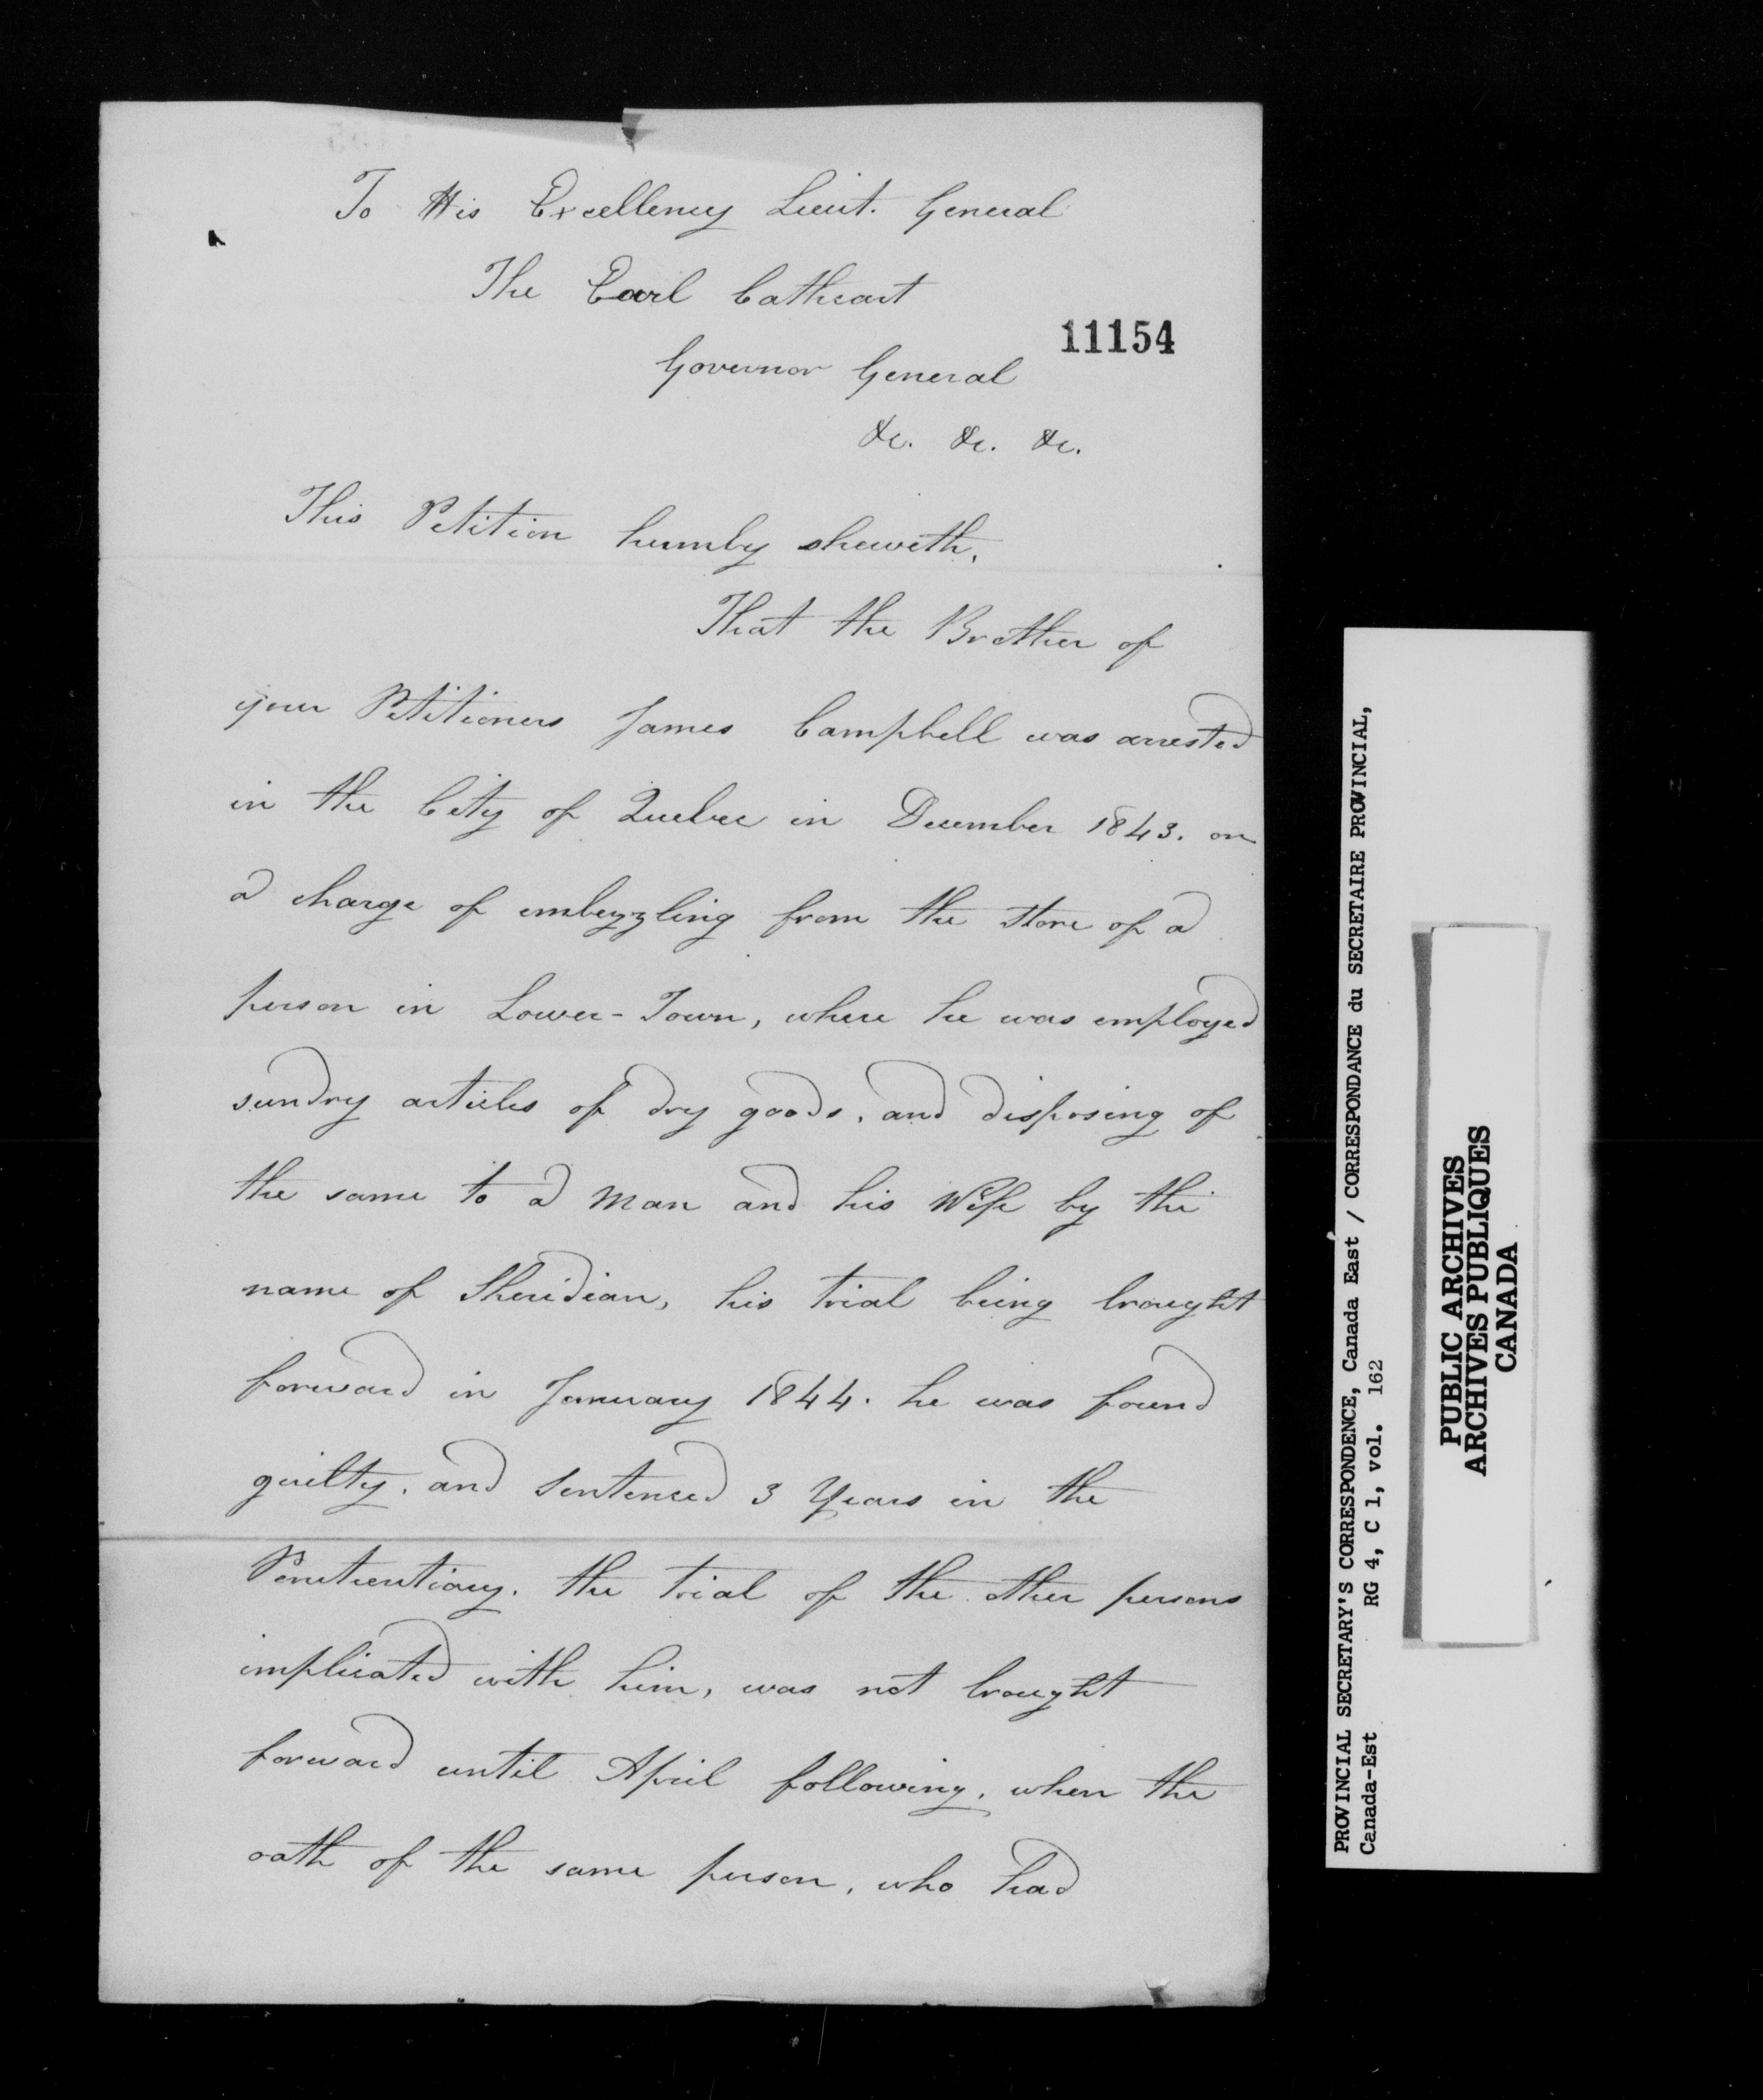 To His Excellency Lieut. General
The Earl Cathcart
11154
Governor General
&c. &c. &c.
This Petition humby sheweth,
That the Brother of
your Petitioners James Campbell was arrested
in the City of Quebec in December 1843. on
a charge of embezzling from the store of a
person in Lower-Town, where he was employed
sundry articles of dry goods, and disposing of
the same to a man and his Wife by the
name of Sheridian, his trial being brought
forward in January 1844. he was found
guilty, and sentenced 3 Years in the
Penetentiary. the trial of the other persons
implicated with him, was not brought
forward until April following, when the
oath of the same person, who had
PROVINCIAL SECRETARY'S CORRESPONDENCE, Canada East / CORRESPONDANCE du SECRETAIRE PROVINCIAL,
Canada-Est RG 4, C 1, vol. 162
PUBLIC ARCHIVES
ARCHIVES PUBLIQUES
CANADA